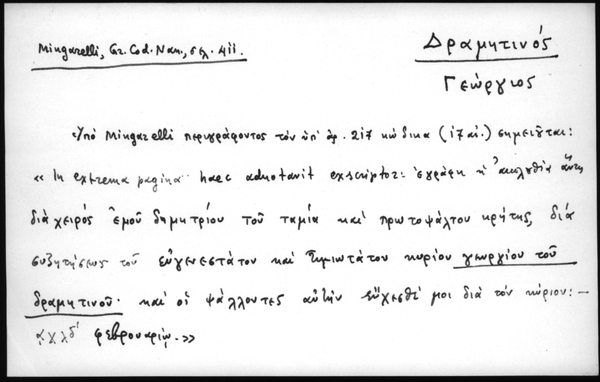 Mingarelli, Gr. Cod. Nan., σελ. 411.
Δραμητινός
Γεώργιος
Ὑπό Mingarelli περιγράφοντος τόν ὑπ' ἀρ. 217 κώδικα (17 αἰ.) σημειοῦται:
« In extrema pagina haec adnotavit exscriptor: ἐγράφη ἡ ἀκολυθία αὕτη
διά χειρός ἐμοῦ δημητρίου τοῦ ταμία καί πρωτοψάλτου κρήτης, διά
συζητήσεως τοῦ εὐγενεστάτου καί τιμιωτάτου κυρίου γεωργίου τοῦ
δραμητινοῦ· καί οἱ ψάλλοντες αὐτήν εὔχεσθέ μοι διά τόν κύριον: —
͵αχλδ' φεβρουαρίῳ.»